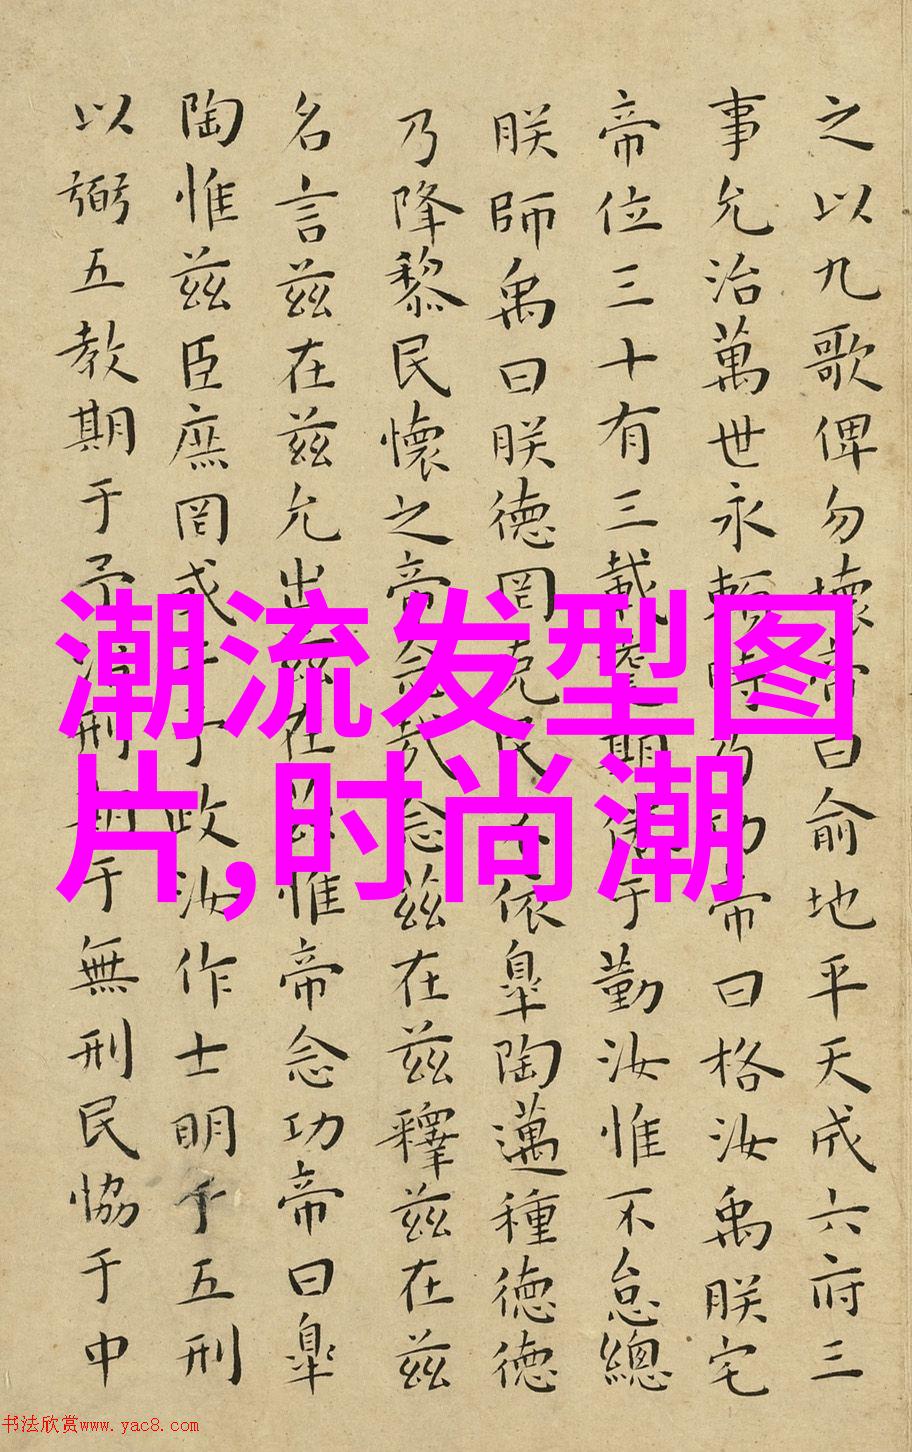 之以九歌俾勿壞帝曰俞地平天成六府三
事允治萬世永賴時乃功帝曰格汝禹朕宅
帝位三十有三載耄期倦于勤汝惟不怠總
朕師禹曰朕德罔克民不依皐陶邁種德德
乃降黎民懷之帝念哉念茲在茲釋茲在茲
名言茲在茲允出茲在茲惟帝念功帝曰皐
陶惟茲臣庶罔或干予政汝作士明于五刑
以弼五教期于予治刑期于無刑民恊于中
潮流发型图
片,时尚潮
书法欣赏www.yac8.com